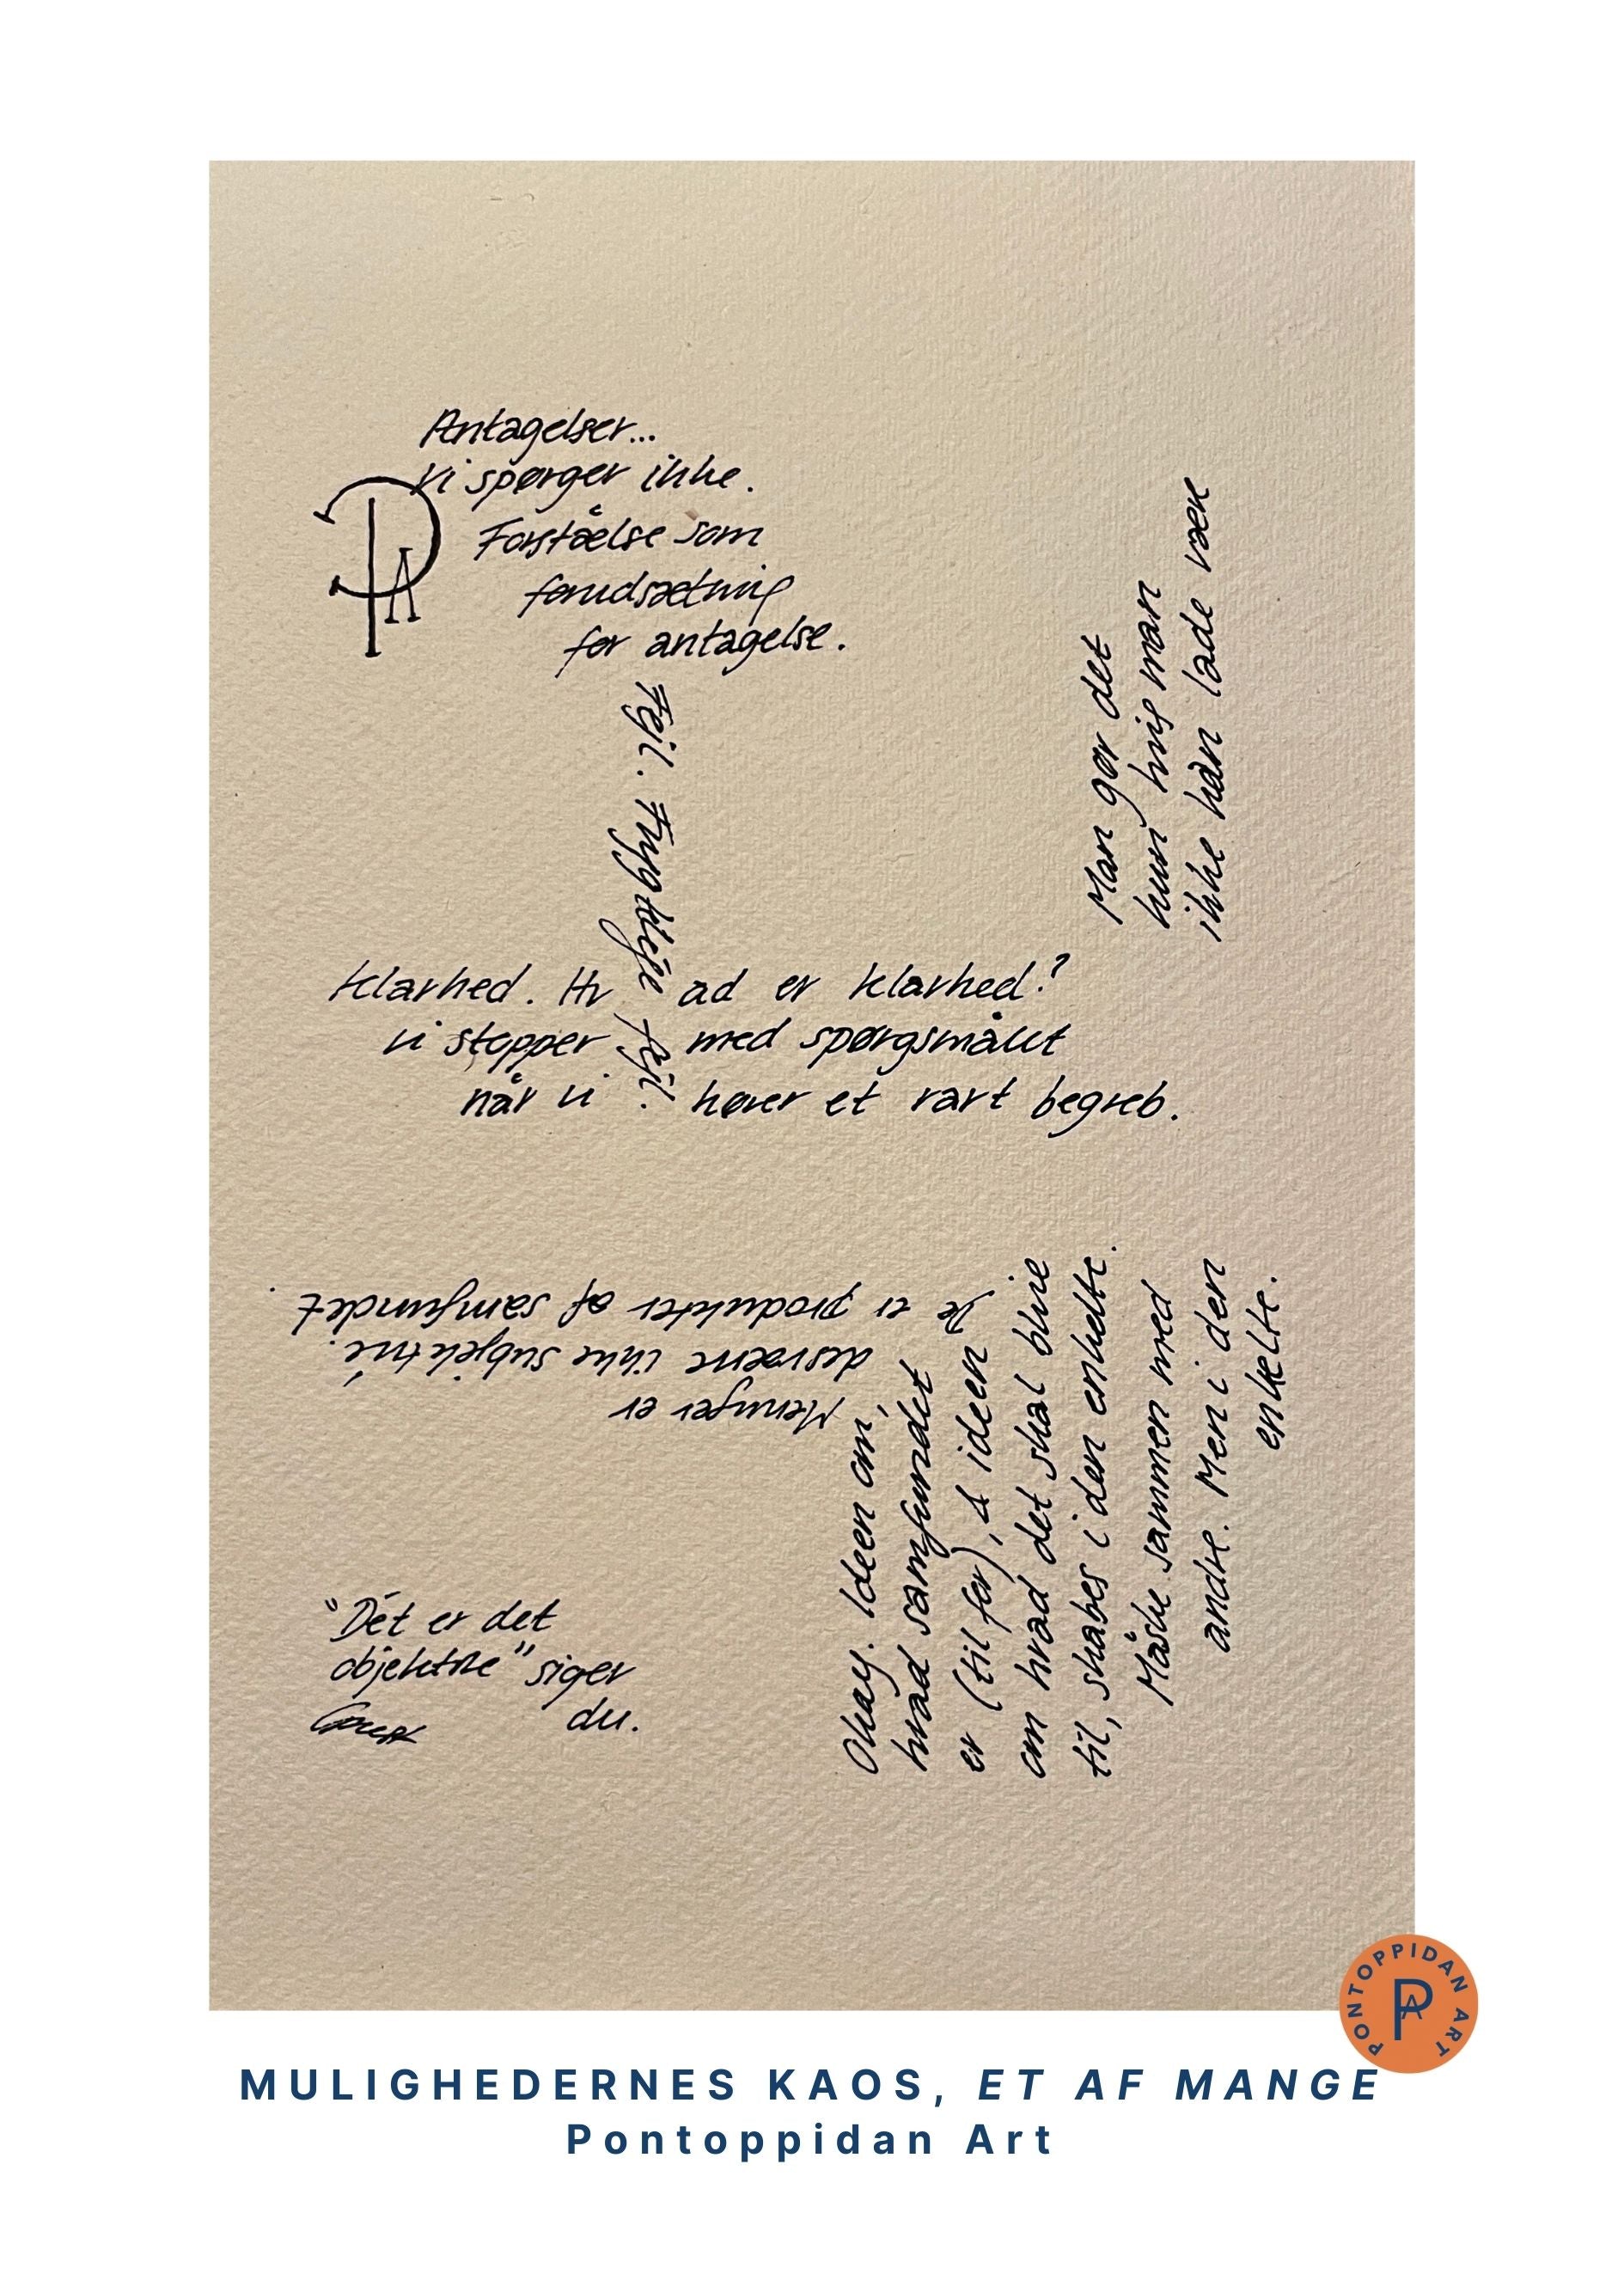 Antagelser...
Vi spørger ikke.
Forståelse som
forudsætning
for antagelse.
PA
Fejl. Frygtelige fejl.
Man gør det
kun hvis man
ikke kan lade være
Klarhed. Hv ad er klarhed?
Vi stopper med spørgsmålet
når vi hører et rart begreb.
Meninger er
desværre ikke subjektive.
De er produkter af samfundet.
Okay. Ideen om,
hvad samfundet
er (til for), & ideen
om hvad det skal blive
til, skabes i den enkelte.
Måske sammen med
andre. Men i den
enkelte.
"Dét er det
objektive" siger
du.
PONTOPPIDAN ART
PA
MULIGHEDERNES KAOS, ET AF MANGE
Pontoppidan Art